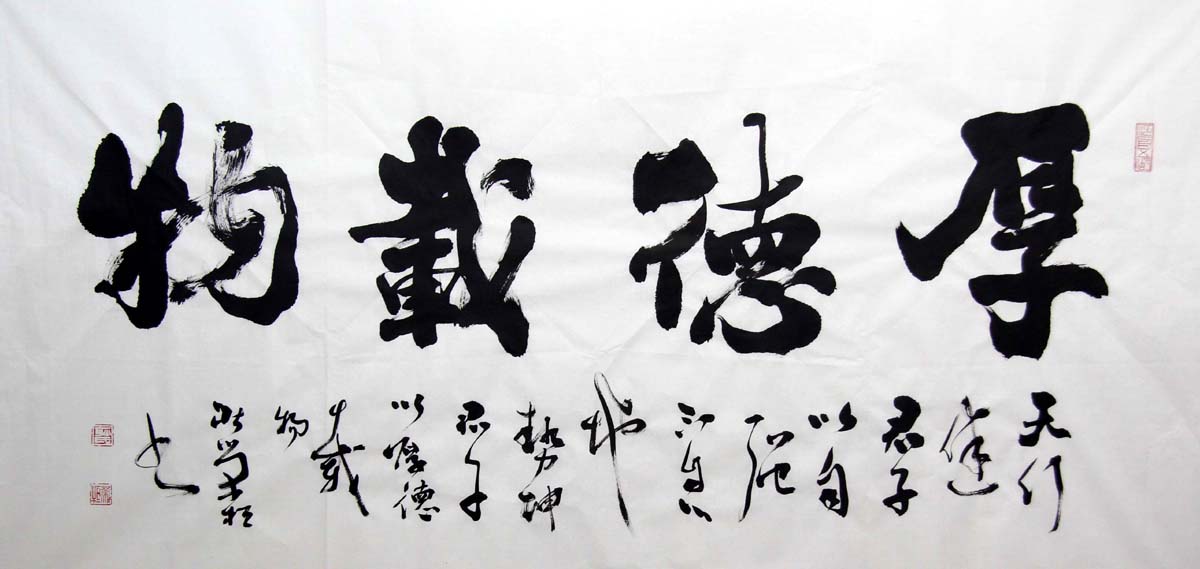 厚德載物
天行
健
君子
以自
强
不息
地
勢坤
君子
以厚德
載
物
书